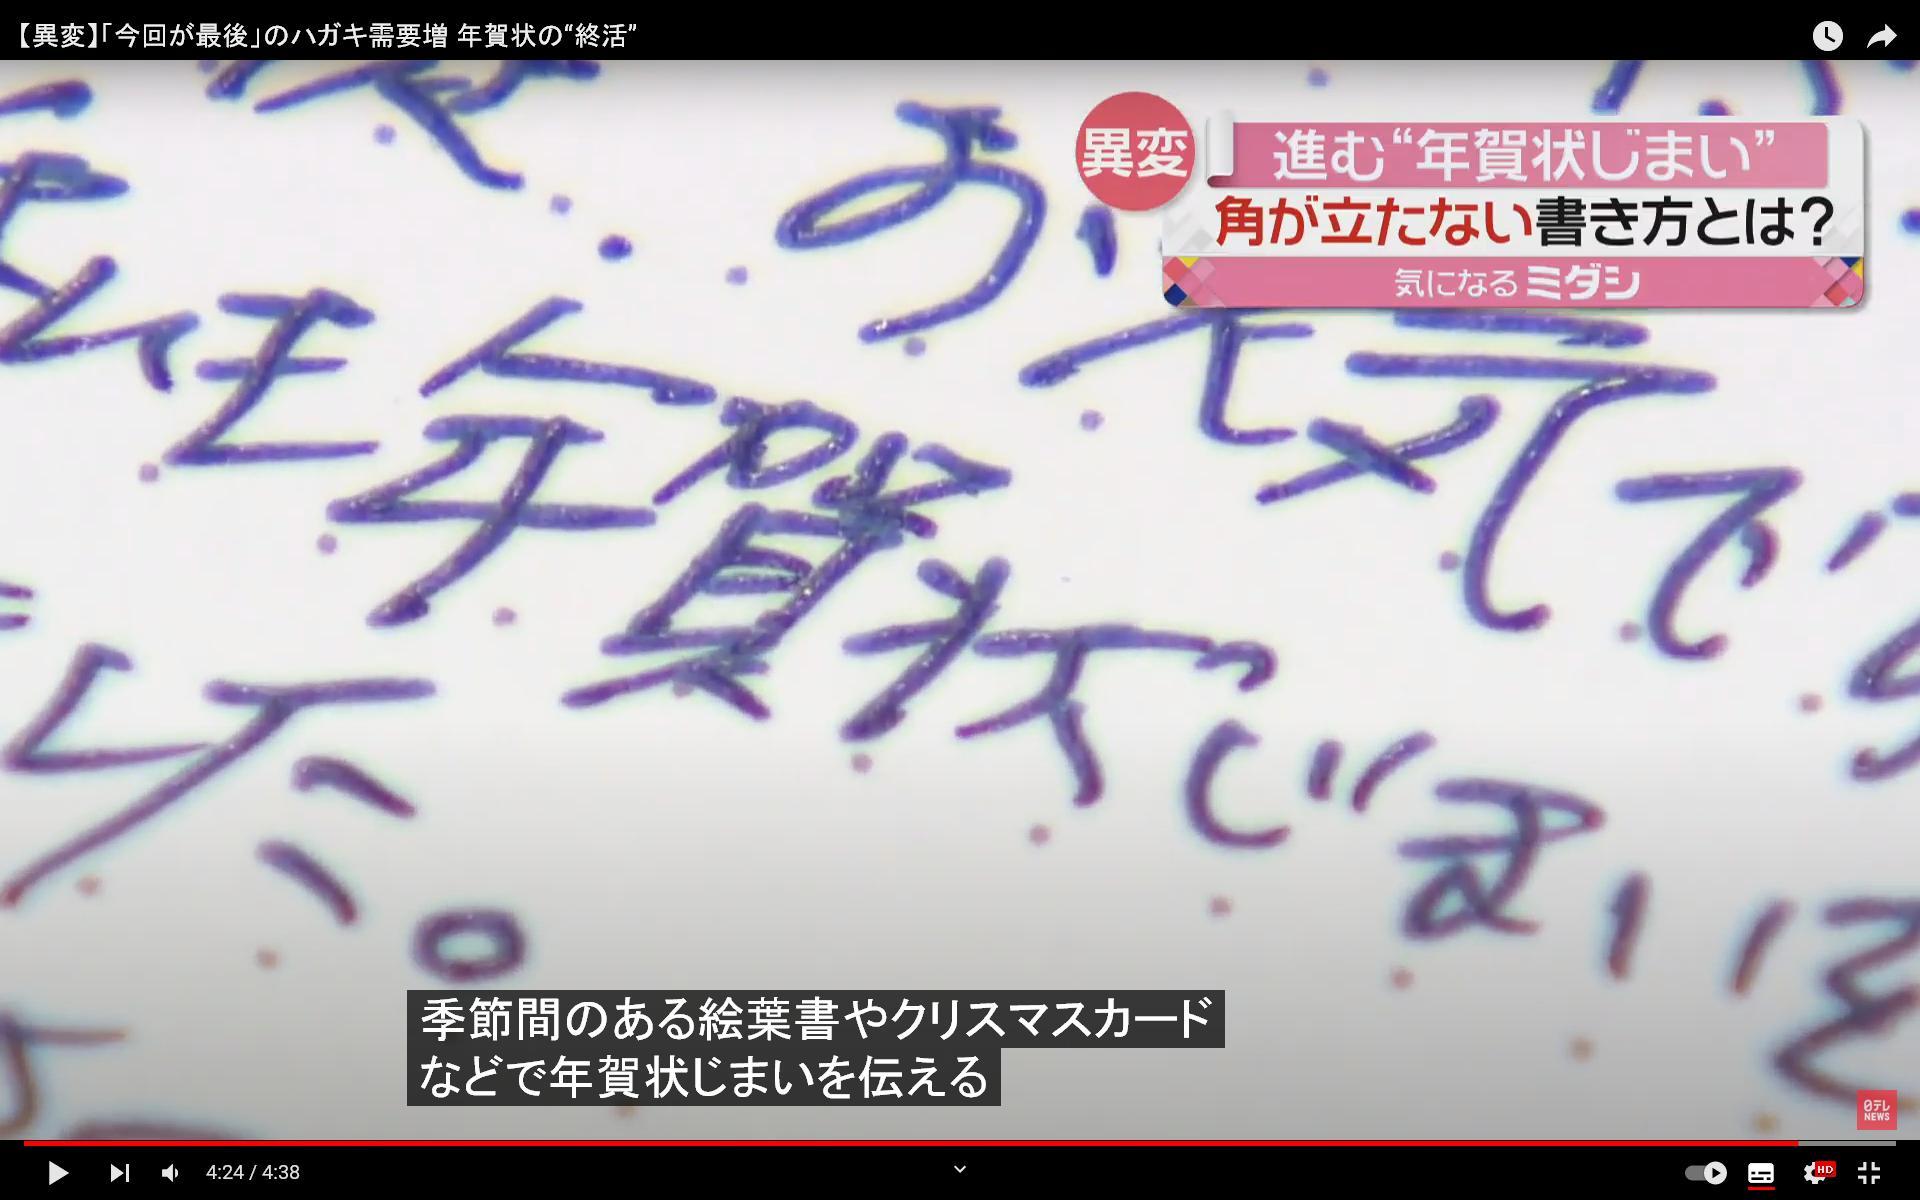 【異変】「今回が最後」のハガキ需要増 年賀状の“終活”
異変
進む“年賀状じまい”
角が立たない書き方とは?
気になるミダシ
お
元気で
年賀状じまい
季節間のある絵葉書やクリスマスカード
などで年賀状じまいを伝える
日テレ
NEWS
4:24 / 4:38
HD